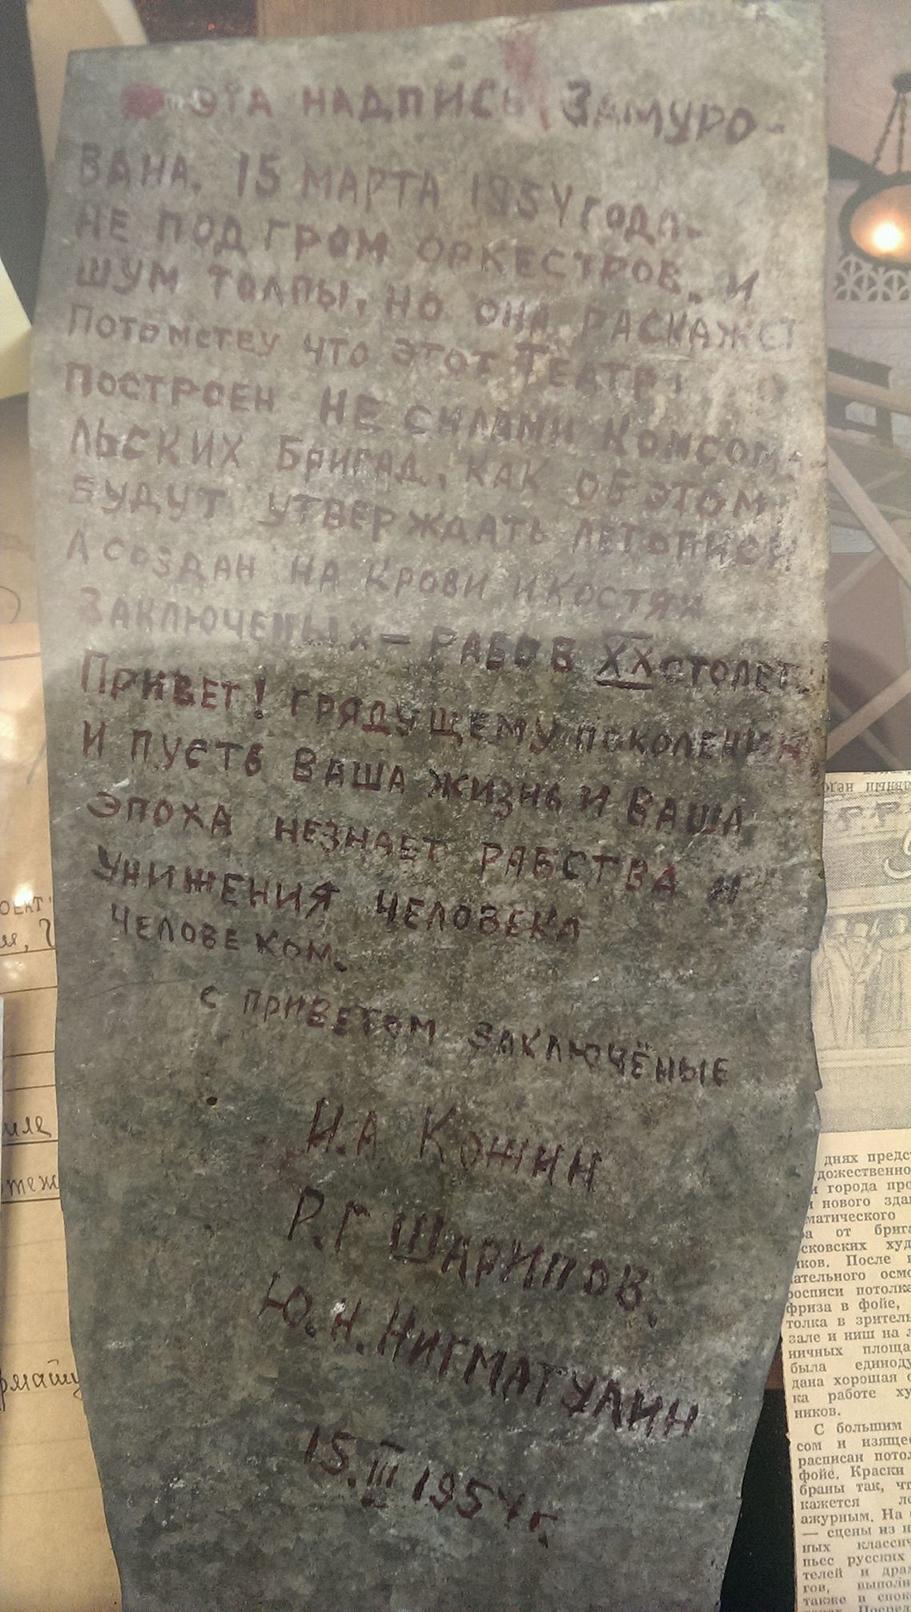 ЭТА НАДПИСЬ ЗАМУРО-
ВАНА. 15 МАРТА 1954 ГОДА.
НЕ ПОД ГРОМ ОРКЕСТРОВ. И
ШУМ ТОЛПЫ, НО ОНА РАСКАЖЕТ
ПОТОМСТВУ ЧТО ЭТОТ ТЕАТР
ПОСТРОЕН НЕ СИЛАМИ КОМСОМО-
ЛЬСКИХ БРИГАД, КАК ОБ ЭТОМ
БУДУТ УТВЕРЖДАТЬ ЛЕТОПИСИ
А СОЗДАН НА КРОВИ И КОСТЯХ
ЗАКЛЮЧЕНЫХ — РАБОВ XX СТОЛЕТ.
ПРИВЕТ! ГРЯДУЩЕМУ ПОКОЛЕНИЮ
И ПУСТЬ ВАША ЖИЗНЬ И ВАША
ЭПОХА НЕЗНАЕТ РАБСТВА И
УНИЖЕНИЯ ЧЕЛОВЕКА
ЧЕЛОВЕКОМ.
С ПРИВЕТОМ ЗАКЛЮЧЁНЫЕ
И.А КОЖИН
Р.Г ШАРИПОВ.
Ю.Н.НИГМАТУЛИН
15.III 1954г.
днях предс
удожественно
города про
нового здан
матического
ра от брига
сковских худ
ков. После
ательного осмо
росписи потолка
фриза в фойе,
толка в зритель
зале и ниш на л
ничных площа
была единоду
дана хорошая о
ка работе ху
ников.
С большим
сом и изящес
расписан потол
фойе. Краски
браны так, чт
кажется ле
ажурным. На
— сцены из
ных классич
пьес русских
телей и дра
гов, выполн
также в спок